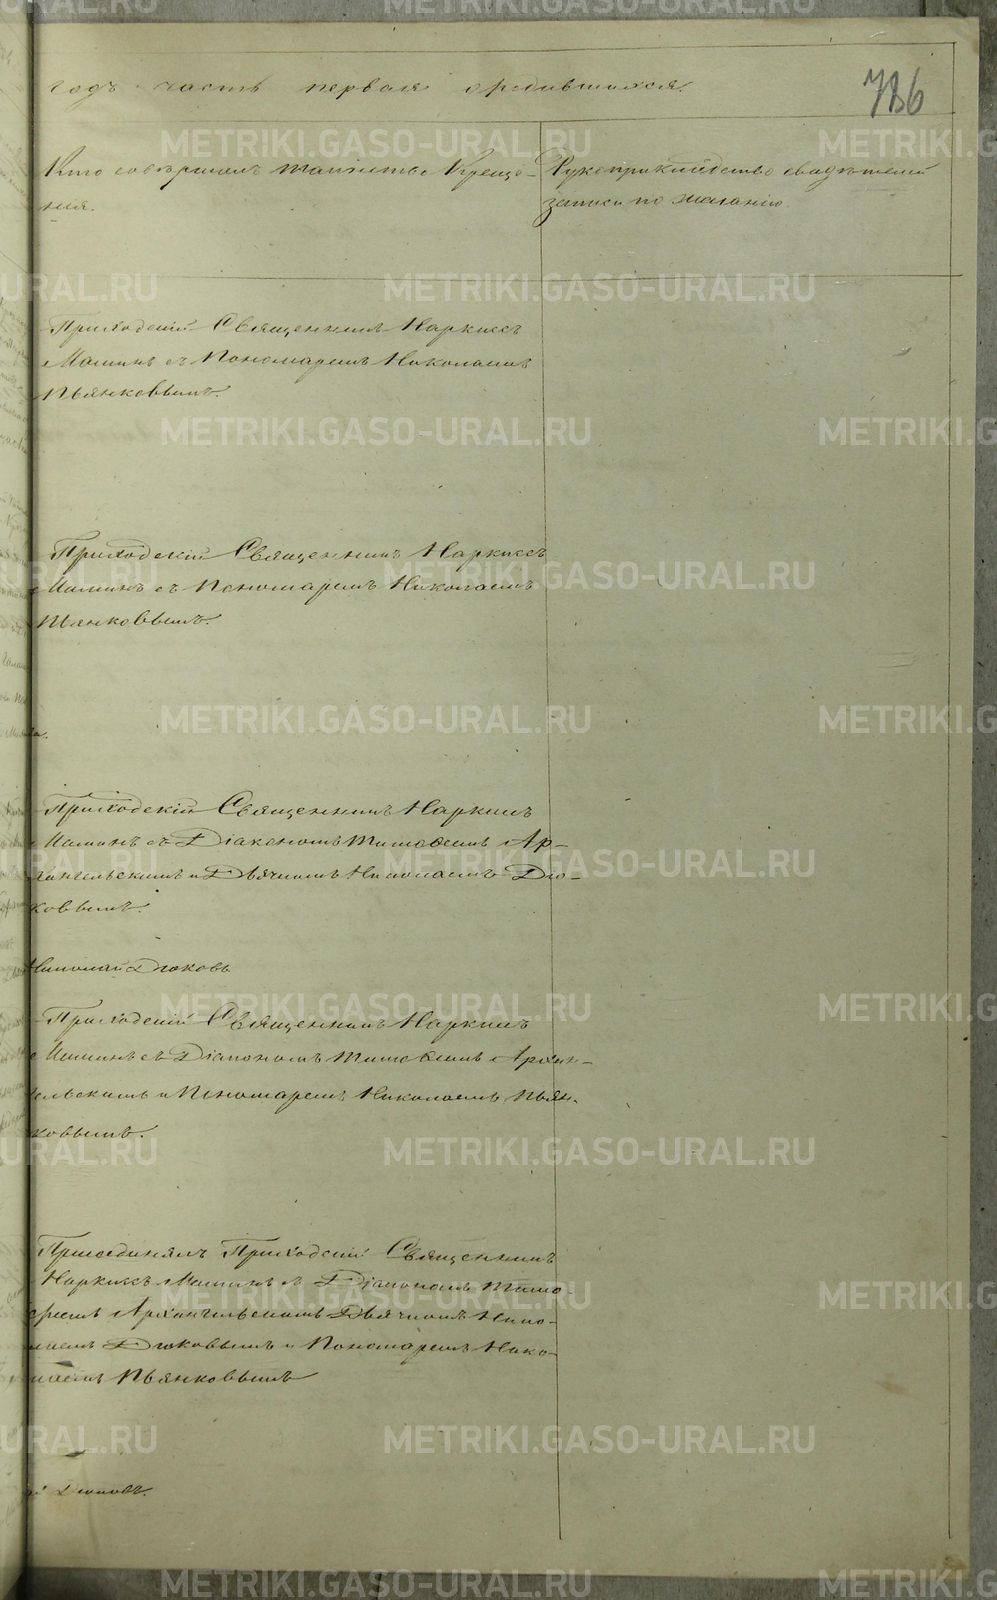 годъ часть первая о родившихся.
786
Кто совершалъ таинство Креще-
нія.
Рукоприкладство свидѣтелей
записи по желанію.
Приходскій Священникъ Наркисъ
Маминъ съ Пономаремъ Николаемъ
Пьянковымъ.
Приходскій Священникъ Наркисъ
Маминъ съ Пономаремъ Николаемъ
Пьянковымъ.
Приходскій Священникъ Наркисъ
Маминъ съ Діакономъ Тимофеемъ Ар-
хангельскимъ и Дьячкомъ Николаемъ Дю-
ковымъ.
Николай Дюковъ
Приходскій Священникъ Наркисъ
Маминъ съ Діакономъ Тимофеемъ Архан-
гельскимъ и Пономаремъ Николаемъ Пьян-
ковымъ.
Присоединялъ Приходскій Священникъ
Наркисъ Маминъ съ Діакономъ Тимо-
феемъ Архангельскимъ Дьячкомъ Нико-
лаемъ Дюковымъ и Пономаремъ Нико-
лаемъ Пьянковымъ
й Дюковъ.
METRIKI.GASO-URAL.RU